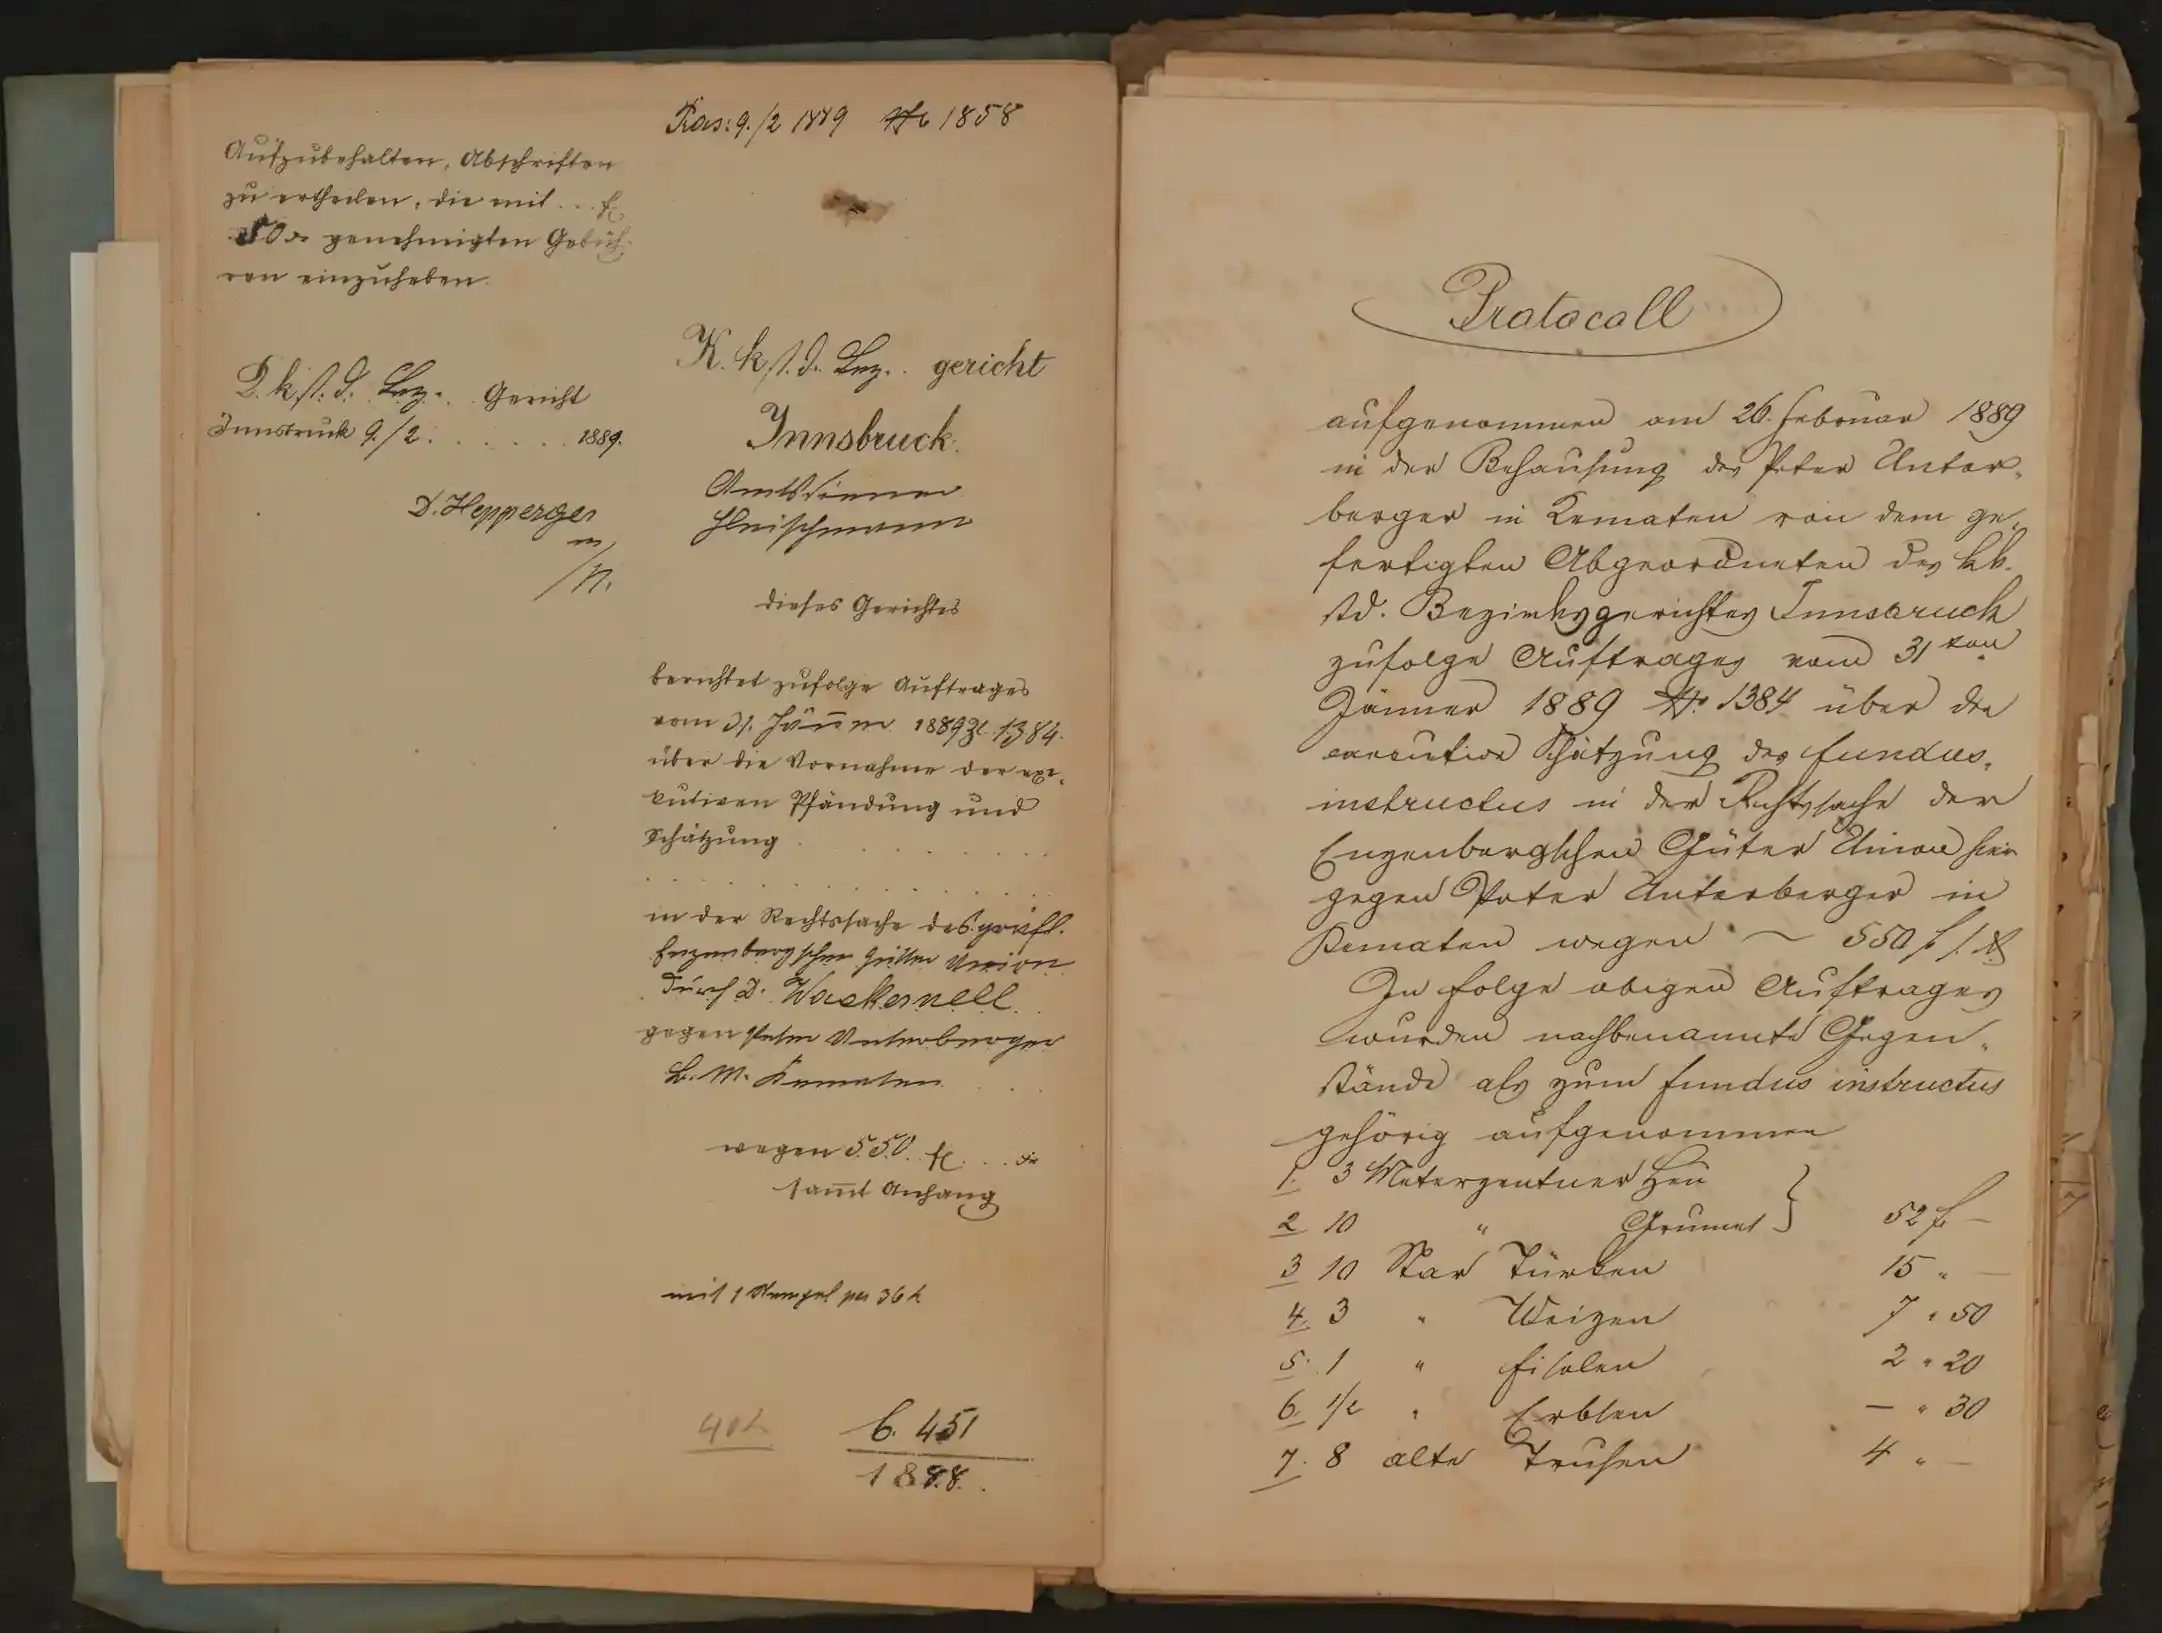 Aufzubehalten, Abschriften
zu ertheilen, die mit . . . f
50 x genehmigten Gebüh-
ren einzuheben.
K. k. st. d. Bez. . Gericht
Innsbruck 9./2 . . . . . . 1889.
D. Hepperger
m/
/N.
Präs: 9./2 1889 No 1858
K. k. st. d. Bez. . gericht
Innsbruck.
Amtsdiener
Fleischmann
dieses Gerichtes
berichtet zufolge Auftrages
vom 31. Jänner 1889 Zl. 1384.
über die Vornahme der exe-
kutiven Pfändung und
Schätzung . . . . . . .
in der Rechtssache des gräfl.
Enzenbergschen Güter Union
durch D. Wackernell
gegen Peter Unterberger
in Kematen
wegen 550 fl . . . x
sammt Anhang
mit 1 Stempel per 36 k
40 k
C. 451
1888.
Protocoll
aufgenommen am 26. Februar 1889
in der Behausung des Peter Unter-
berger in Kematen von dem ge-
fertigten Abgeordneten des kk.
std. Bezirksgerichtes Innsbruck
zufolge Auftrages vom 31ten
Jänner 1889 No. 1384 über die
executive Schätzung des fundus-
instructus in der Rechtssache der
Enzenbergschen Güter Union hier
gegen Peter Unterberger in
Kematen wegen ~ 550 f
In folge obigen Auftrages
wurden nachbenannte Gegen-
stände als zum fundus instructus
gehörig aufgenommen
1. 3 Meterzentner Heu
2 10 " Grumet } 52 f —
3 10 Star Türken 15 " —
4. 3 " Weizen 7 " 50
5. 1 " Fisolen 2 " 20
6 1/2 " Erbsen — " 30
7. 8 alte Truhen 4 " —